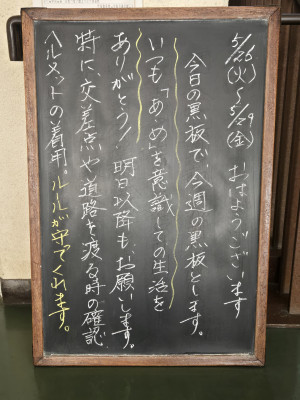 5/26(火)~5/29(金) おはようございます
今日の黒板で、今週の黒板とします。
いつも「あ・め」を意識しての生活を
ありがとう! 明日以降も、お願いします。
特に、交差点や道路を渡る時の確認、
ヘルメットの着用。ルールが守ってくれます。